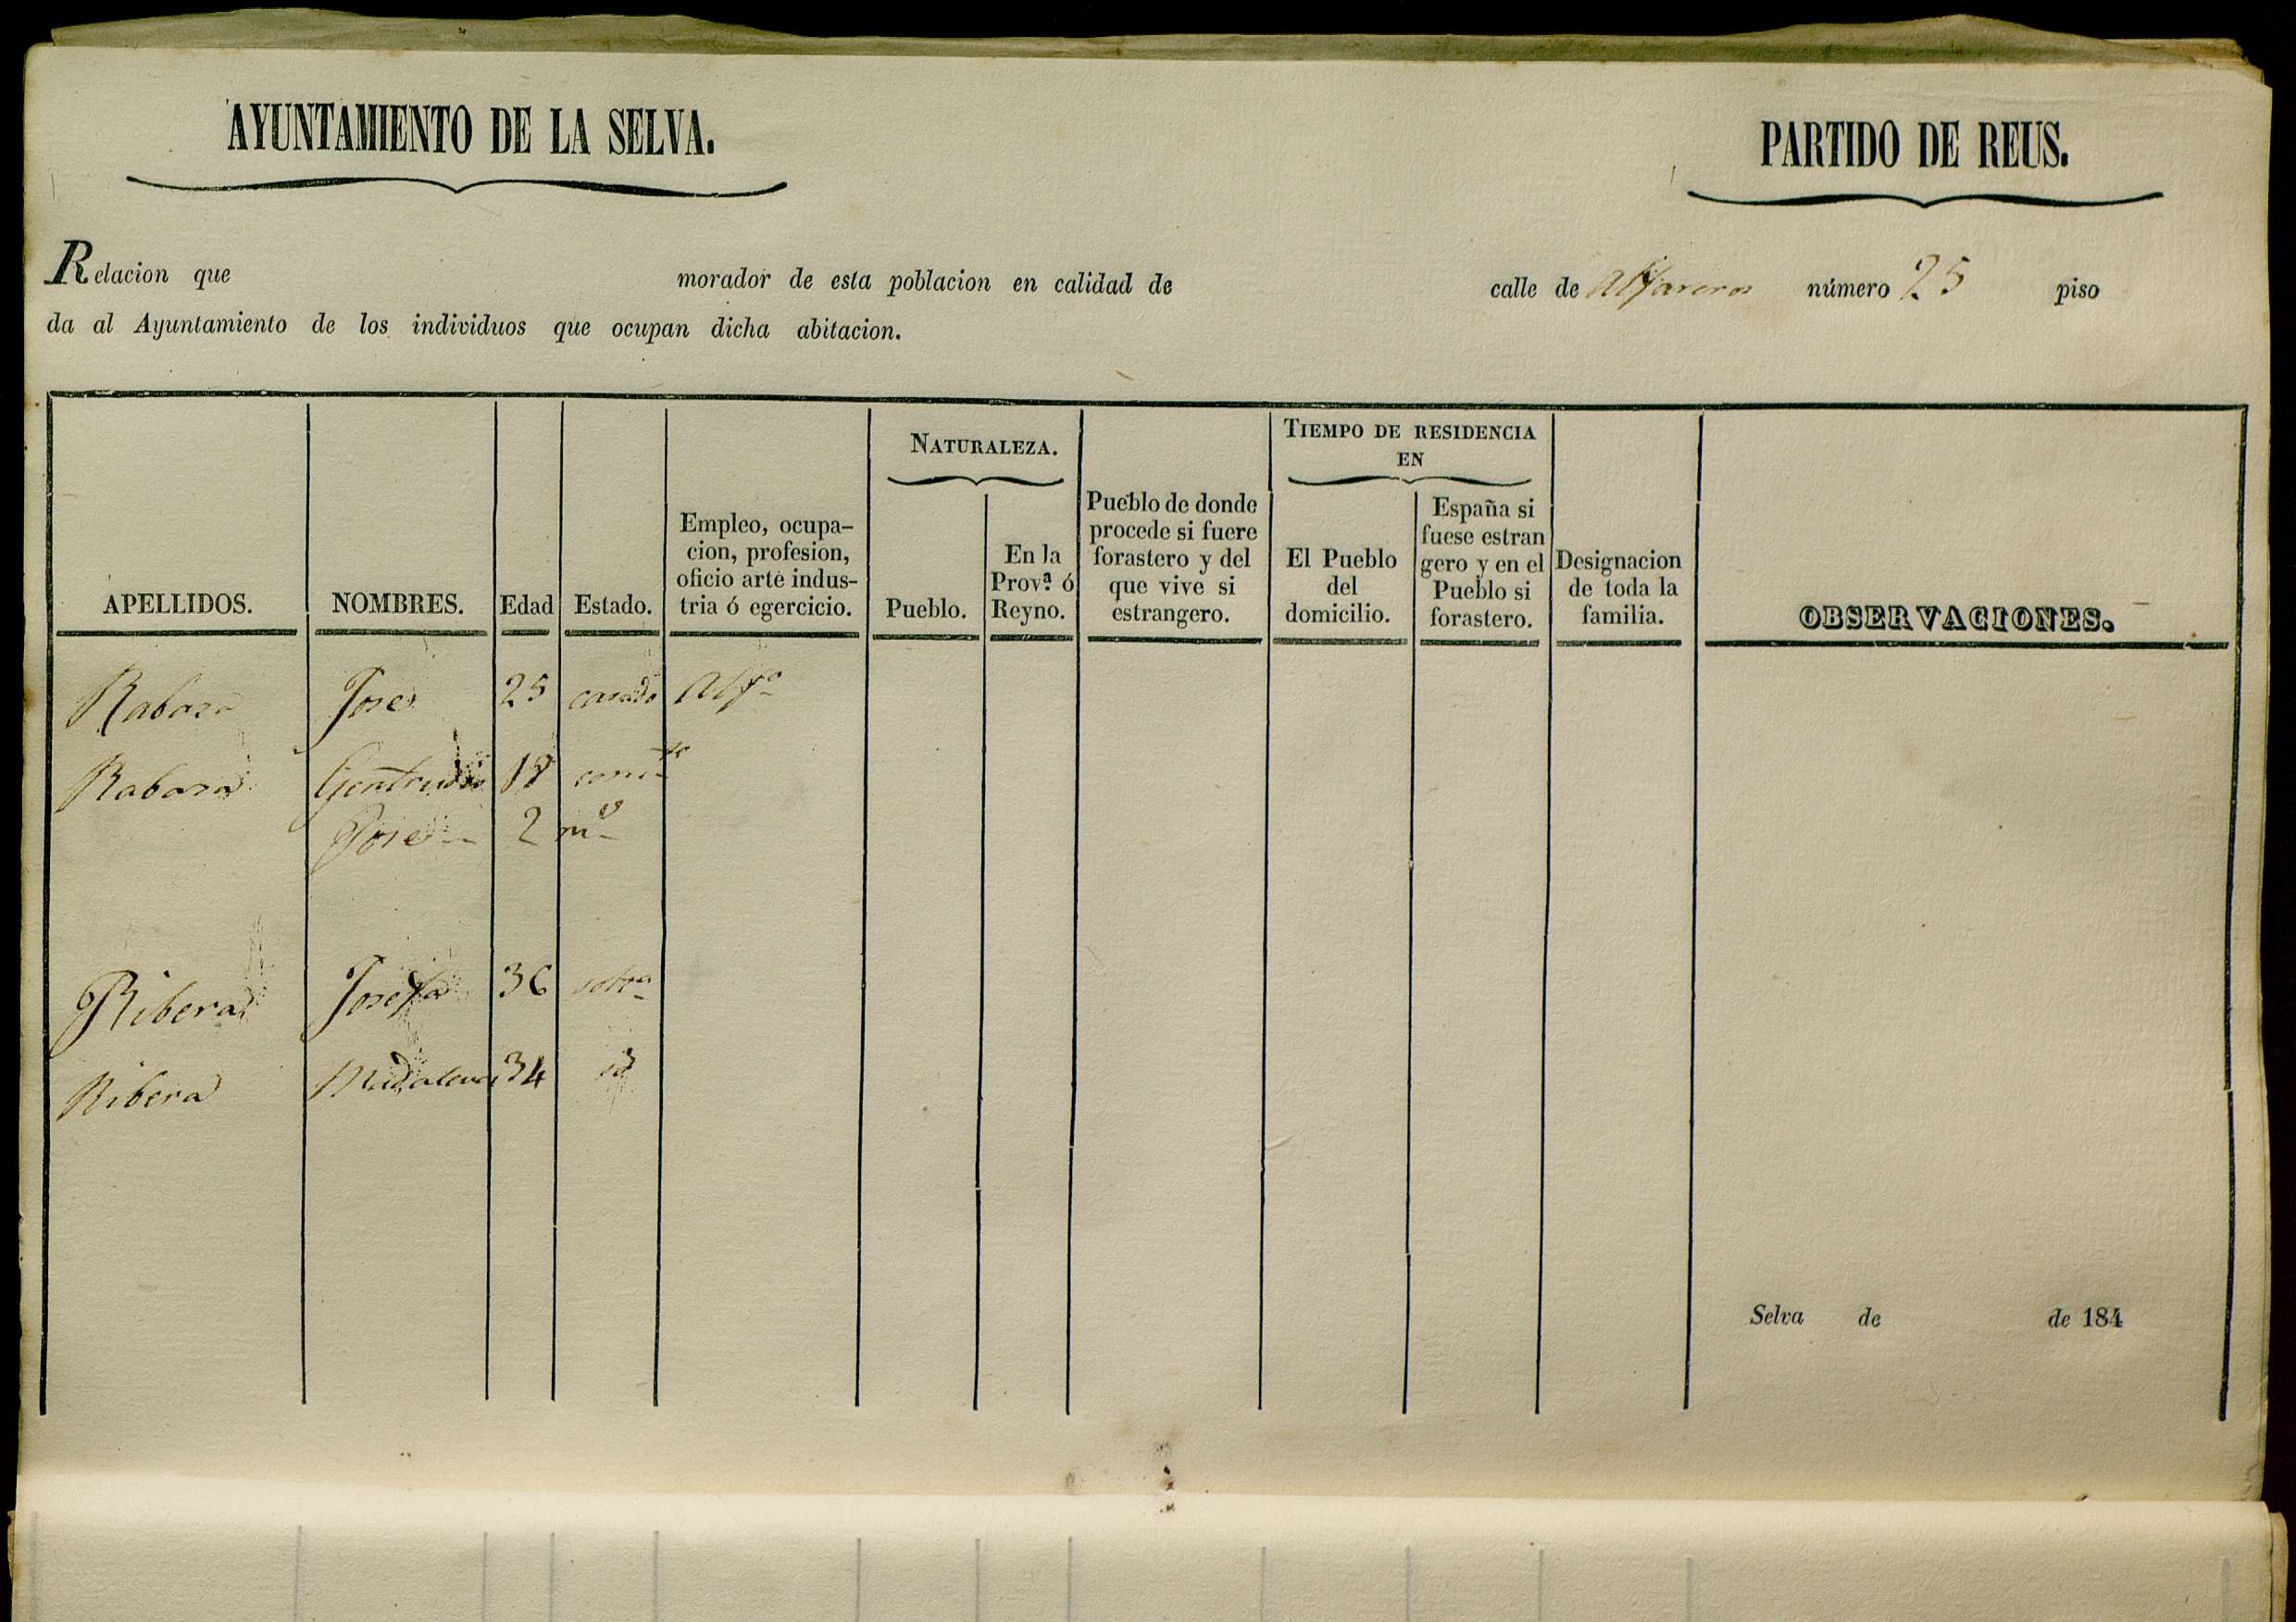 AYUNTAMIENTO DE LA SELVA.
PARTIDO DE REUS.
Relacion que morador de esta poblacion en calidad de calle de Alfareros número 25 piso
da al Ayuntamiento de los individuos que ocupan dicha abitacion.
APELLIDOS.
NOMBRES.
Edad
Estado.
Empleo, ocupa-
cion, profesion,
oficio arte indus-
tria ó egercicio.
NATURALEZA.
Pueblo.
En la
Prov.ª ó
Reyno.
Pueblo de donde
procede si fuere
forastero y del
que vive si
estrangero.
TIEMPO DE RESIDENCIA
EN
El Pueblo
del
domicilio.
España si
fuese estran
gero y en el
Pueblo si
forastero.
Designacion
de toda la
familia.
OBSERVACIONES.
Rabasa Jose 25 casado Alfo
Rabasa 18
Jose 2 ms
Ribera Josefa 36 soltra
Ribera Madalena 34 id
Selva de de 184